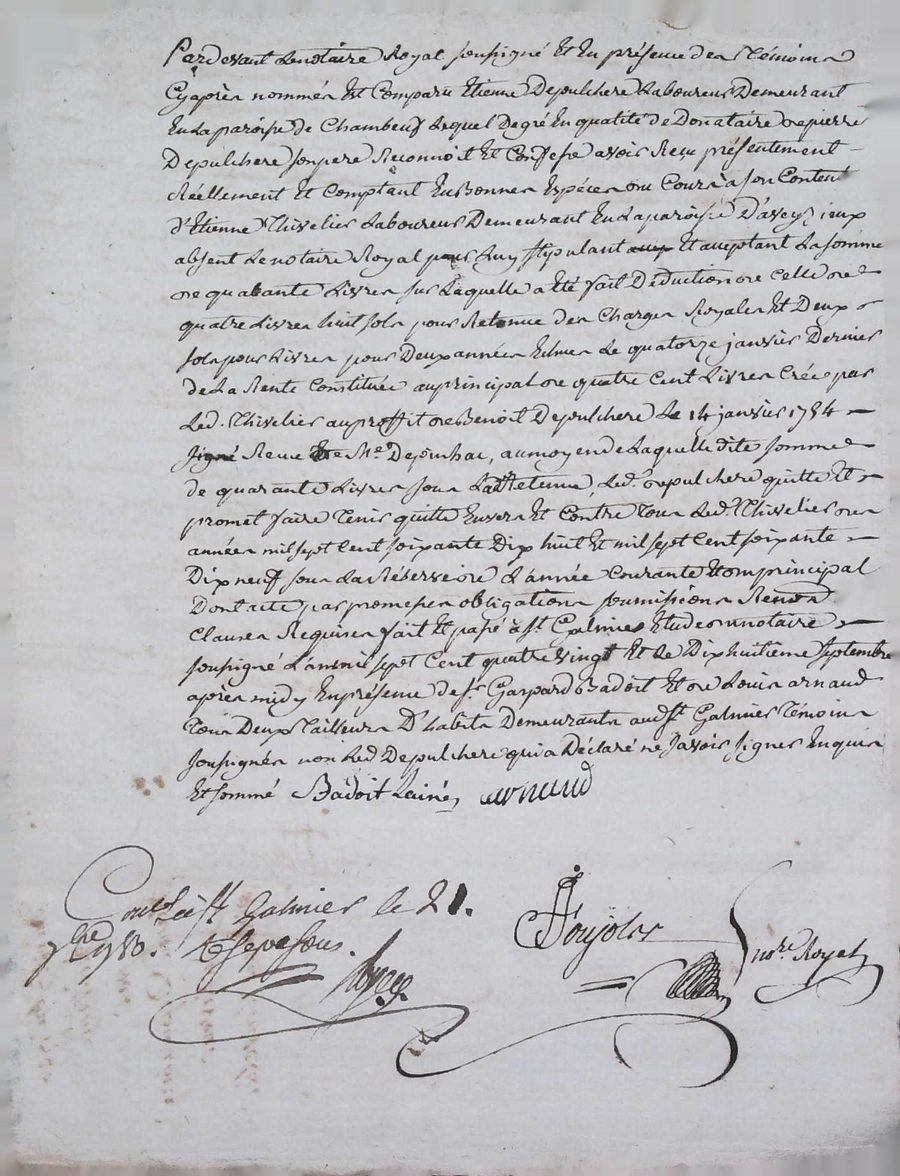 Pardevant Le notaire Royal soussigné Et En présence des Témoins
Cyaprès nommés Est Comparu Etienne Depulchere Laboureur Demeurant
En La paroisse de Chambeuf Lequel De gré En qualité de Donataire de pierre
Depulchere son pere Reconnoit Et Confesse avoir Reçu présentement
Réellement Et Comptant En Bonnes Espéces au Cours à son Content
d'Etienne Thivelier Laboureur Demeurant En La paroisse D'aveyzieux
absent Le notaire Royal pour Luy stipulant Et acceptant La somme
de quarante Livres sur Laquelle a été fait Déduction de Celle de
quatre Livres huit sols pour Retenue des Charges Royales Et Deux
sols pour Livres pour Deux années Echues Le quatorze janvier Dernier
de La Rente Constituée au principal de quatre Cent Livres Créée par
Led. Thivelier au proffit de Benoit Depulchere Le 14 janvier 1754
Reçue Me Depinhac, au moyen de Laquelle dite somme
de quarante Livres sous Ladte Retenue, Led. Depulchere quitte Et
promet faire Tenir quitte Envers Et Contre Tous Led. Thivelier des
années mil sept Cent soixante Dix huit Et mil sept Cent soixante
Dix neuf sous La Réserve de L'année Courante Et du principal
Dont acte par promesses obligations soumissions Renon
Clauses Requises fait Et passé à St. Galmier Etude du notaire
soussigné L'an mil sept Cent quatre vingt Et Le Dix huitième septembre
après midy En présence de sr Gaspard Badoit Et de Louis arnaud
Tous Deux Tailleurs D'habits Demeurants aud. St Galmier Témoins
soussignés non Led. Depulchere qui a Déclaré ne savoir signer Enquis
Et sommé Badoit Lainé, arnaud
Conlé à St Galmier le 21.
7bre 1780. R sept sous.
Soujoler
nore. Royal